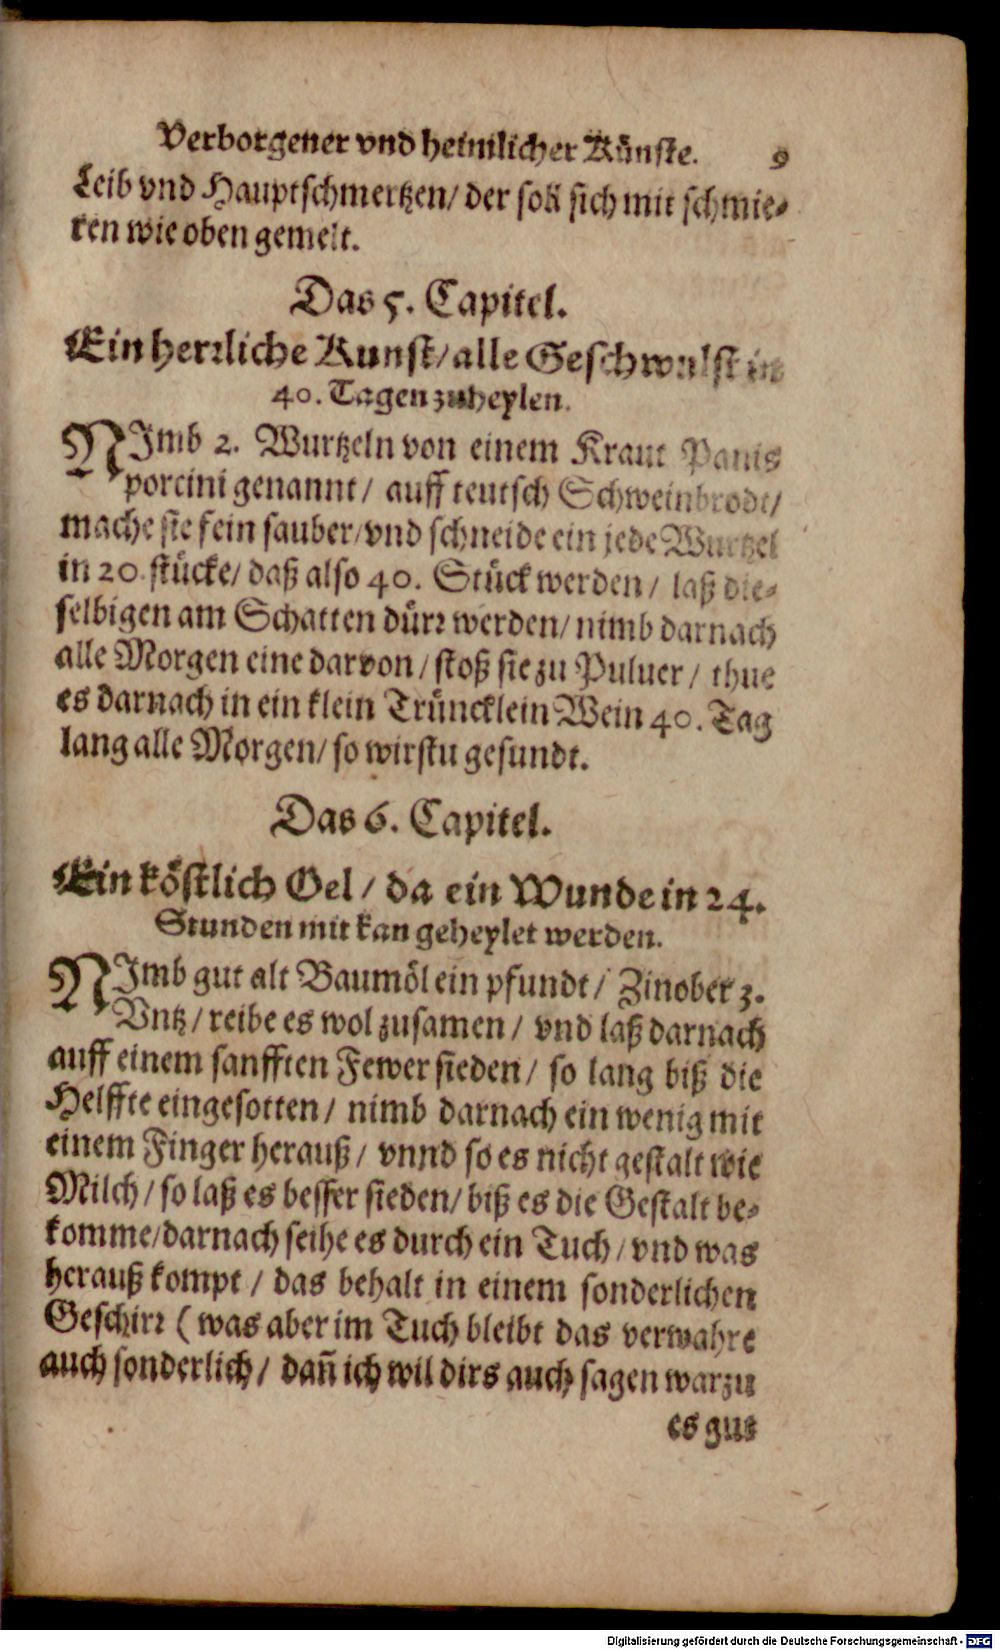 Verborgener vnd heimlicher Künste. 9
Leib vnd Hauptschmertzen/ der soll sich mit schmie-
ren wie oben gemelt.
Das 5. Capitel.
Ein herrliche Kunst/ alle Geschwulst in
40. Tagen zuheylen.
NImb 2. Wurtzeln von einem Kraut Panis
porcini genannt/ auff teutsch Schweinbrodt/
mache sie fein sauber/ vnd schneide ein jede Wurtzel
in 20. stücke/ daß also 40. Stück werden/ laß die-
selbigen am Schatten dürr werden/ nimb darnach
alle Morgen eine darvon/ stoß sie zu Puluer/ thue
es darnach in ein klein Trüncklein Wein 40. Tag
lang alle Morgen/ so wirstu gesundt.
Das 6. Capitel.
Ein köstlich Oel/ da ein Wunde in 24.
Stunden mit kan geheylet werden.
NImb gut alt Baumöl ein pfundt/ Zinober 3.
Vntz/ reibe es wol zusamen/ vnd laß darnach
auff einem sanfften Fewer sieden/ so lang biß die
Helffte eingesotten/ nimb darnach ein wenig mit
einem Finger herauß/ vnnd so es nicht gestalt wie
Milch/ so laß es besser sieden/ biß es die Gestalt be-
komme/ darnach seihe es durch ein Tuch/ vnd was
herauß kompt/ das behalt in einem sonderlichen
Geschirr (was aber im Tuch bleibt das verwahre
auch sonderlich/ dañ ich wil dirs auch sagen warzu
es gut
Digitalisierung gefördert durch die Deutsche Forschungsgemeinschaft - DFG